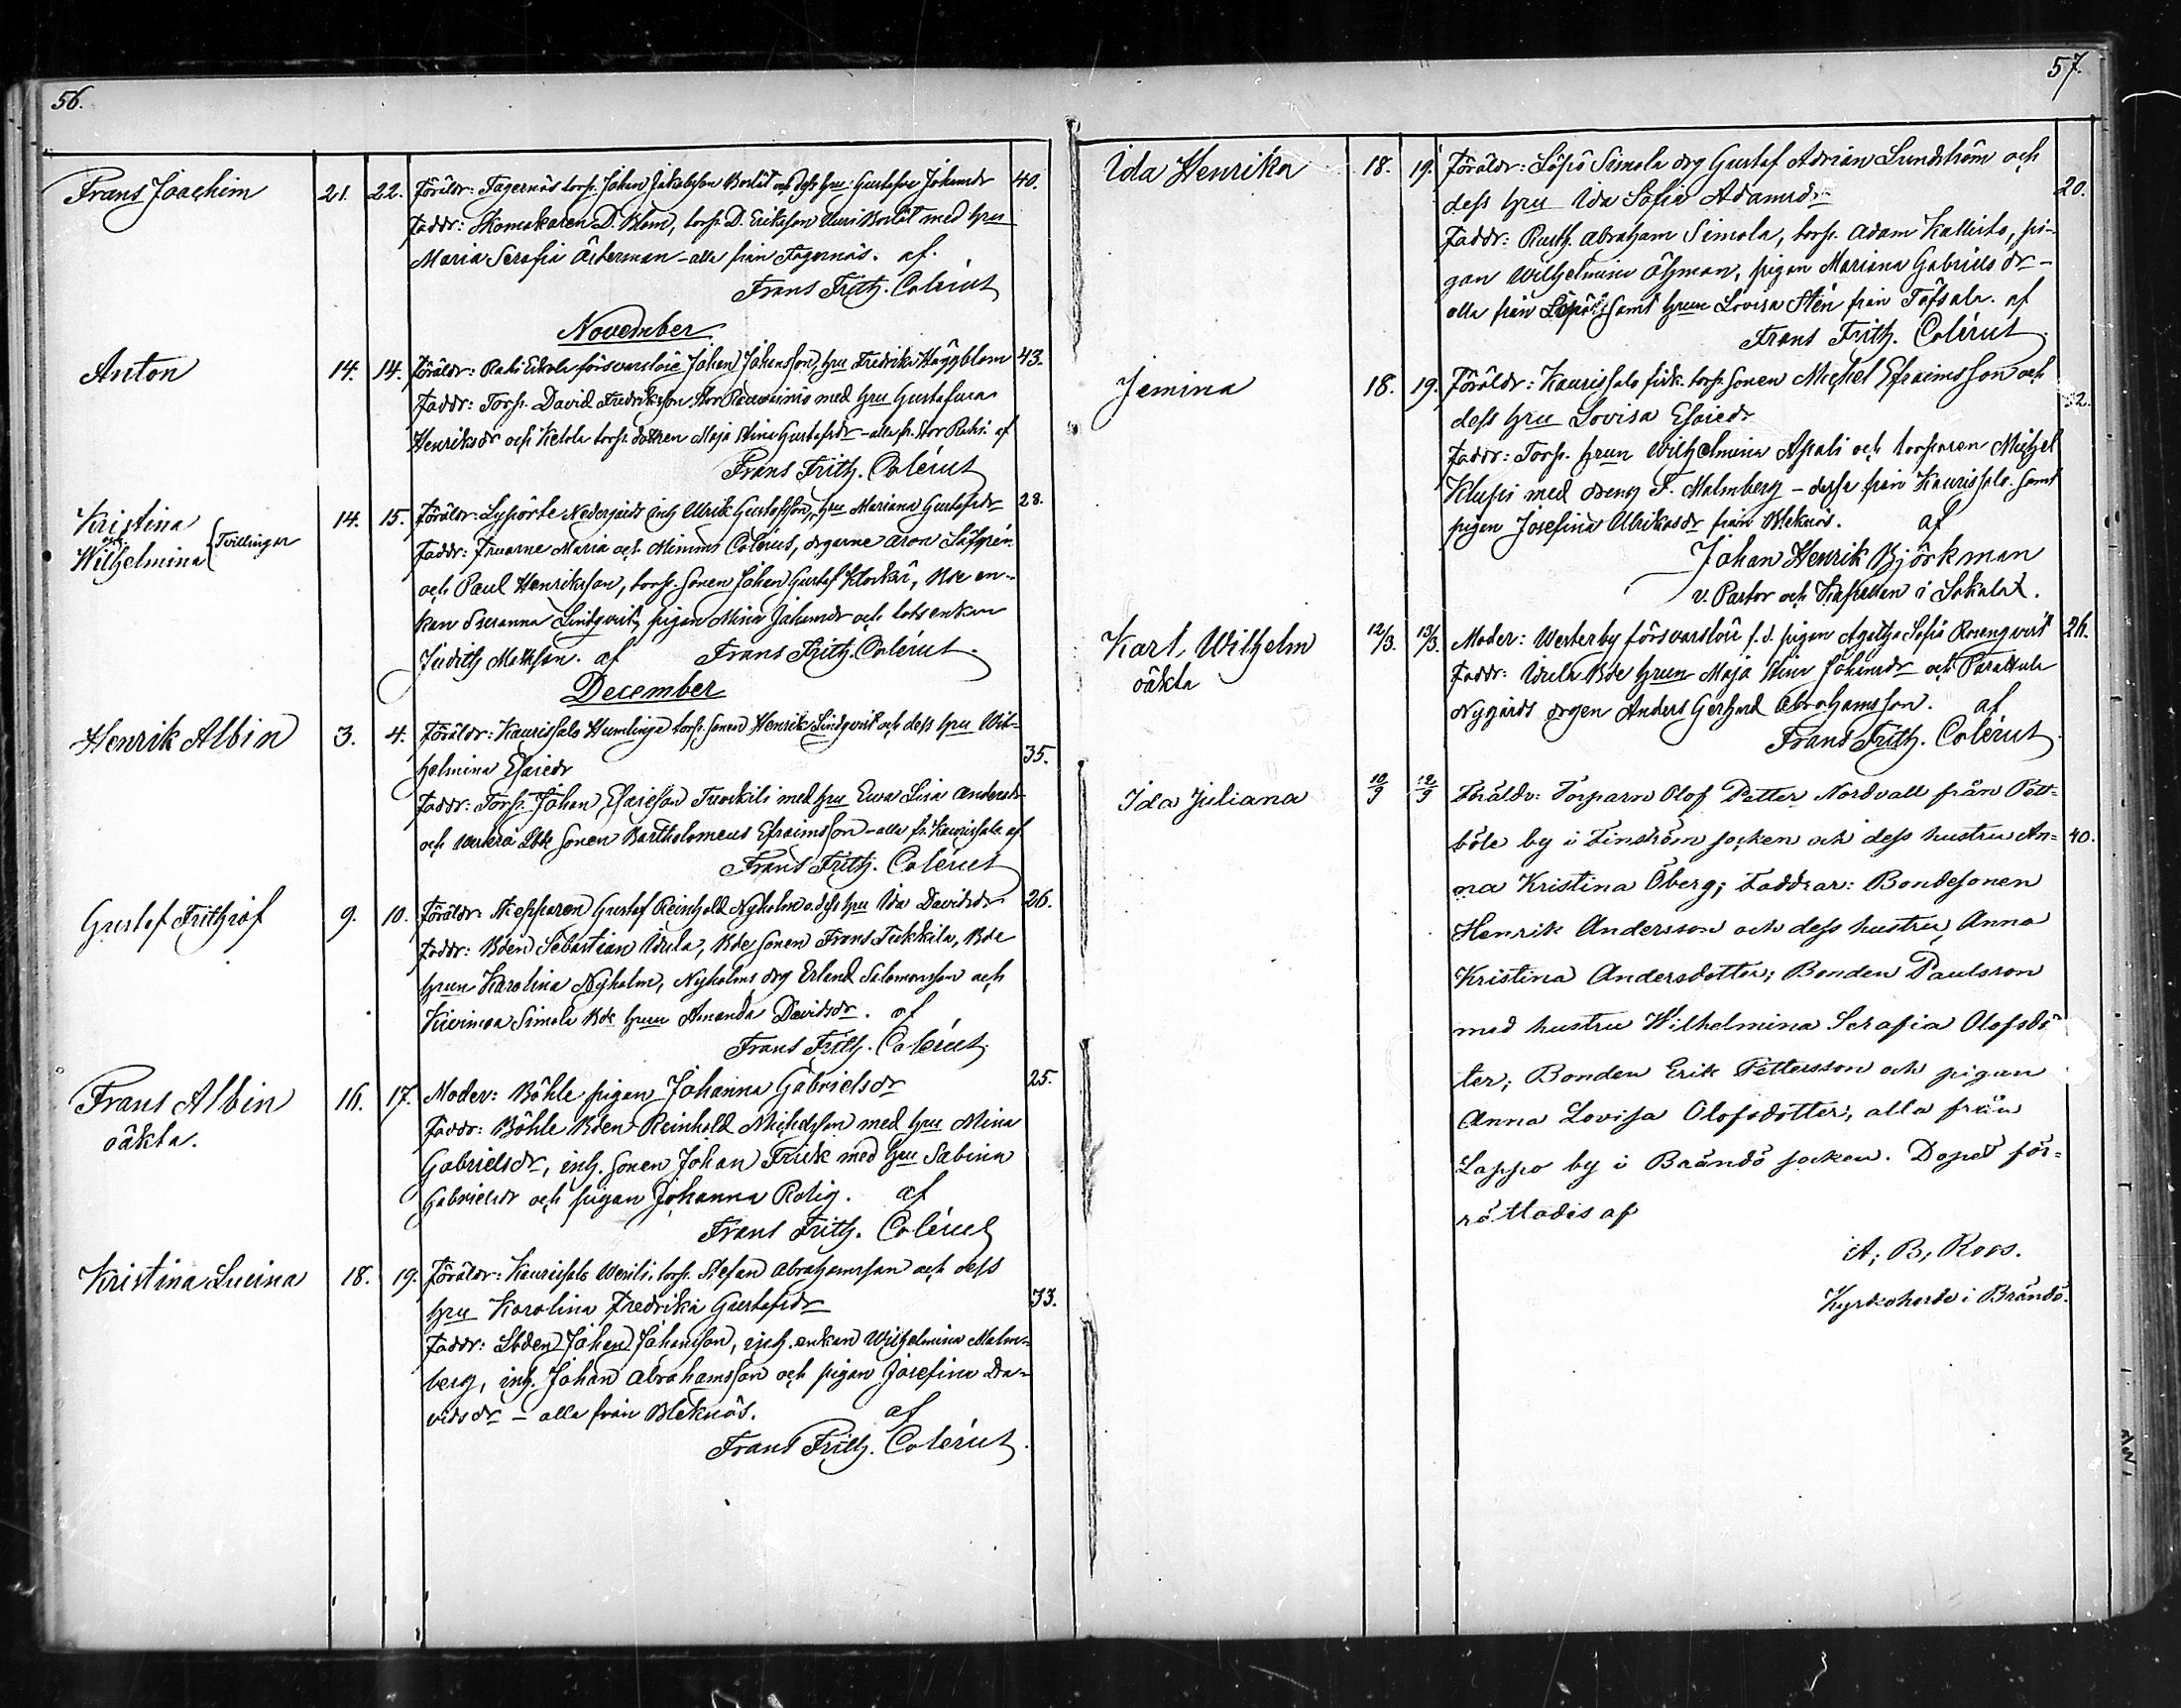 56.
Frans Joachim 21. 22. Föräldr: Fagernäs torp. Johan Jakobsson Boslät och dess hru Gustafva Johansdr 40.
Faddr: Skomakaren D. Blom, torp. D. Eriksson Boslät med hru
Maria Serafia Österman - alla från Fagernäs. af
Frans Frith. Colérus
November
Anton 14. 14. Föräldr: Rahi Eskola försvarslöse Johan Johansson, hru Fredrika Häggblom 43.
Faddr: Torp. David Fredriksson Stor med hru Gustafva
Henriksdr och Ketola torp. dottren Maja Stina Gustafsdr - alla fr. Stor Rahi. af
Frans Frith. Colérus
Kristina och Wilhelmina Tvillingar 14. 15. Föräldr: Lypörte Nedergårds inh Ulrik Gustafsson, hru Mariana Gustafsdr 28.
Faddr: Fruarne Maria och Mimmi Colerus, drgarne Aron Löfgrén
och Paul Henriksson, torp. sonen Johan Gustaf Klockar, Bde en-
kan Susanna Lindqvist, pigan Mina Johansdr och lotsenkan
Judith Mattsson. af Frans Frith. Colérus.
December
Henrik Albin 3. 4. Föräldr: Kaurissalo Humlinga torp. sonen Henrik Lindqvist och dess hru Wil-
helmina Esaiedr 35.
Faddr: Torp. Johan Esaiesson med hru Eva Lisa Andersdr
och Lbde sonen Bartholomeus Efraimsson - alla fr. Kaurissalo. af
Frans Frith. Colérus
Gustaf Frithiof 9. 10. Föräldr: Skepparen Gustaf Reinhold Nyholm o. dess hru Ida Davidsdr 26.
Faddr: Bden Sebastian Udula, Bde sonen Frans Tukkila, Bde
hrun Karolina Nyholm, Nyholms drg Erland Salomonsson och
Kivimaa Simola Bde hrun Amanda Davidsdr. af
Frans Frith. Colérus.
Frans Albin 16. 17. Moder: Böhle pigan Johanna Gabrielsdr 25.
oäkta. Faddr: Böhle Bden Reinhold Michelsson med hru Mina
Gabrielsdr, inh. sonen Johan Frisk med hru Sabina
Gabrielsdr och pigan Johanna Rolig. af
Frans Frith. Colérus
Kristina Lucina 18. 19. Föräldr: Kaurissalo torp. Stefan Abrahamsson och dess
hru Karolina Fredrika Gustafsdr 33.
Faddr: Lbden Johan Johansson, inh. enkan Wilhelmina Malm-
berg, inh. Johan Abrahamsson och pigan Josefina Da-
vidsdr - alla från Bleknäs. af
Frans Frith. Colérus.
57.
Ida Henrika 18. 19. Föräldr: Löpö Simola drg Gustaf Adrian Lundström och
dess hru Ida Sofia Adamsdr 20.
Faddr: Rusth. Abraham Simola, torp. Adam Kallisto, pi-
gan Wilhelmina Öhman, pigan Mariana Gabrielsdr -
alla från Löpö, samt hrun Lovisa Stén från Töfsala. af
Frans Frith. Colérus.
Jemina 18. 19. Föräldr: Kaurissalo torp. sonen Michel Efraimsson och
dess hru Lovisa Esaiedr 32.
Faddr: Torp. hrun Wilhelmina Apali och torparen Michel
Klupi med dreng F. Malmberg - dessa från Kaurissalo. samt
pigan Josefina Ulrikasdr från Bleknäs. af
Johan Henrik Björkman
v. Pastor och Kapellan i Lokalax.
Karl Wilhelm 12/3. 13/3. Moder: Westerby försvarslösa f.d. pigan Agatha Sofia Rosenqvist 24.
oäkta Faddr: Udula Bde hrun Maja Stina Johansdr och Parattula
Nygårds drgen Anders Gerhard Abrahamsson. af
Frans Frith. Colérus.
Ida Juliana 10/9 12/9 Föräldr: Torparn Olof Petter Nordvall från Pett-
böle by i Finström socken och dess hustru An- 40.
na Kristina Öberg; Faddrar: Bondesonen
Henrik Andersson och dess hustru Anna
Kristina Andersdotter; Bonden Paulsson
med hustru Wilhelmina Serafia Olofsdo
ter; Bonden Erik Pettersson och pigan
Anna Lovisa Olofsdotter, alla från
Lappo by i Brändö socken. Dopet för-
rättades af
A. B. Roos.
Kyrkoherde i Brändö.